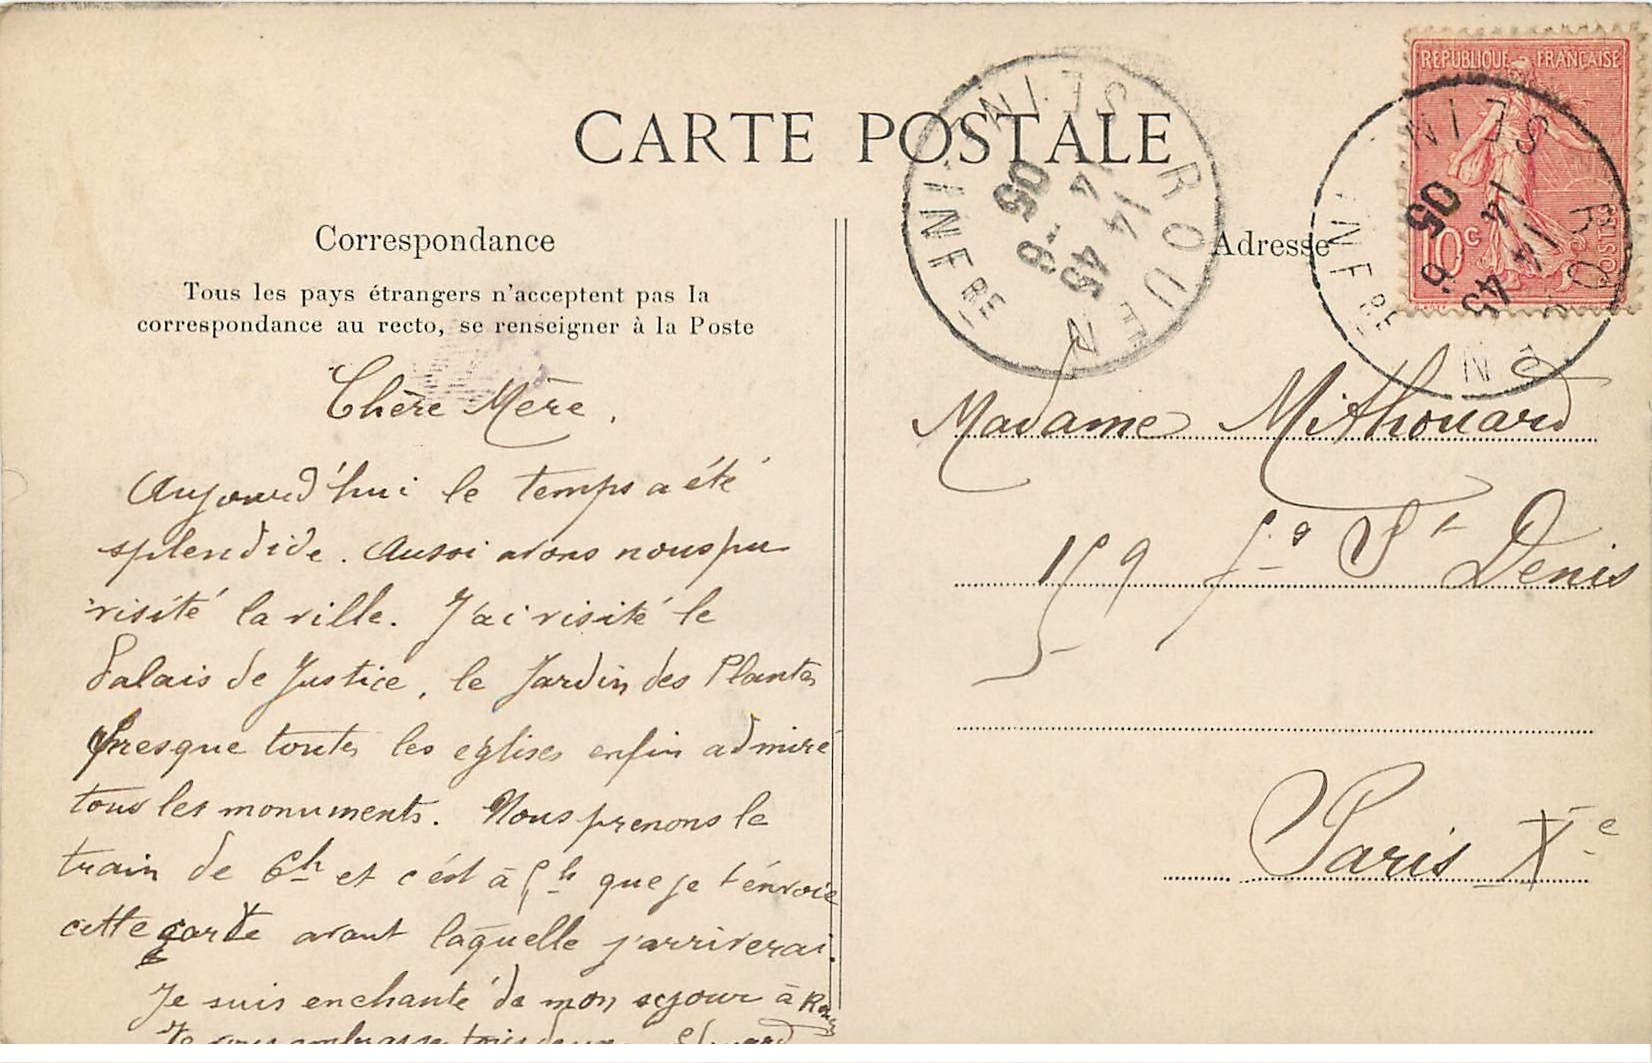 CARTE POSTALE
Correspondance
Tous les pays étrangers n'acceptent pas la
correspondance au recto, se renseigner à la Poste
Chère Mère,
Aujourd'hui le temps a été
splendide. Aussi avons nous pu
visité la ville. J'ai visité le
Palais de Justice, le Jardin des Plantes
presque toutes les eglises enfin admiré
tous les monuments. Nous prenons le
train de 6h et c'est à 5h que je t'envoie
cette carte avant laquelle j'arriverai.
Je suis enchanté de mon sejour à Rouen
Je vous embrasse tous deux Edouard
Adresse
Madame Mithouard
159 fg St Denis
Paris Xe
REPUBLIQUE FRANÇAISE
POSTES
10c
ROUEN
SEINE INFRE
14 45
14 -6
05
ROUEN
SEINE INFRE
14 45
14 -6
05